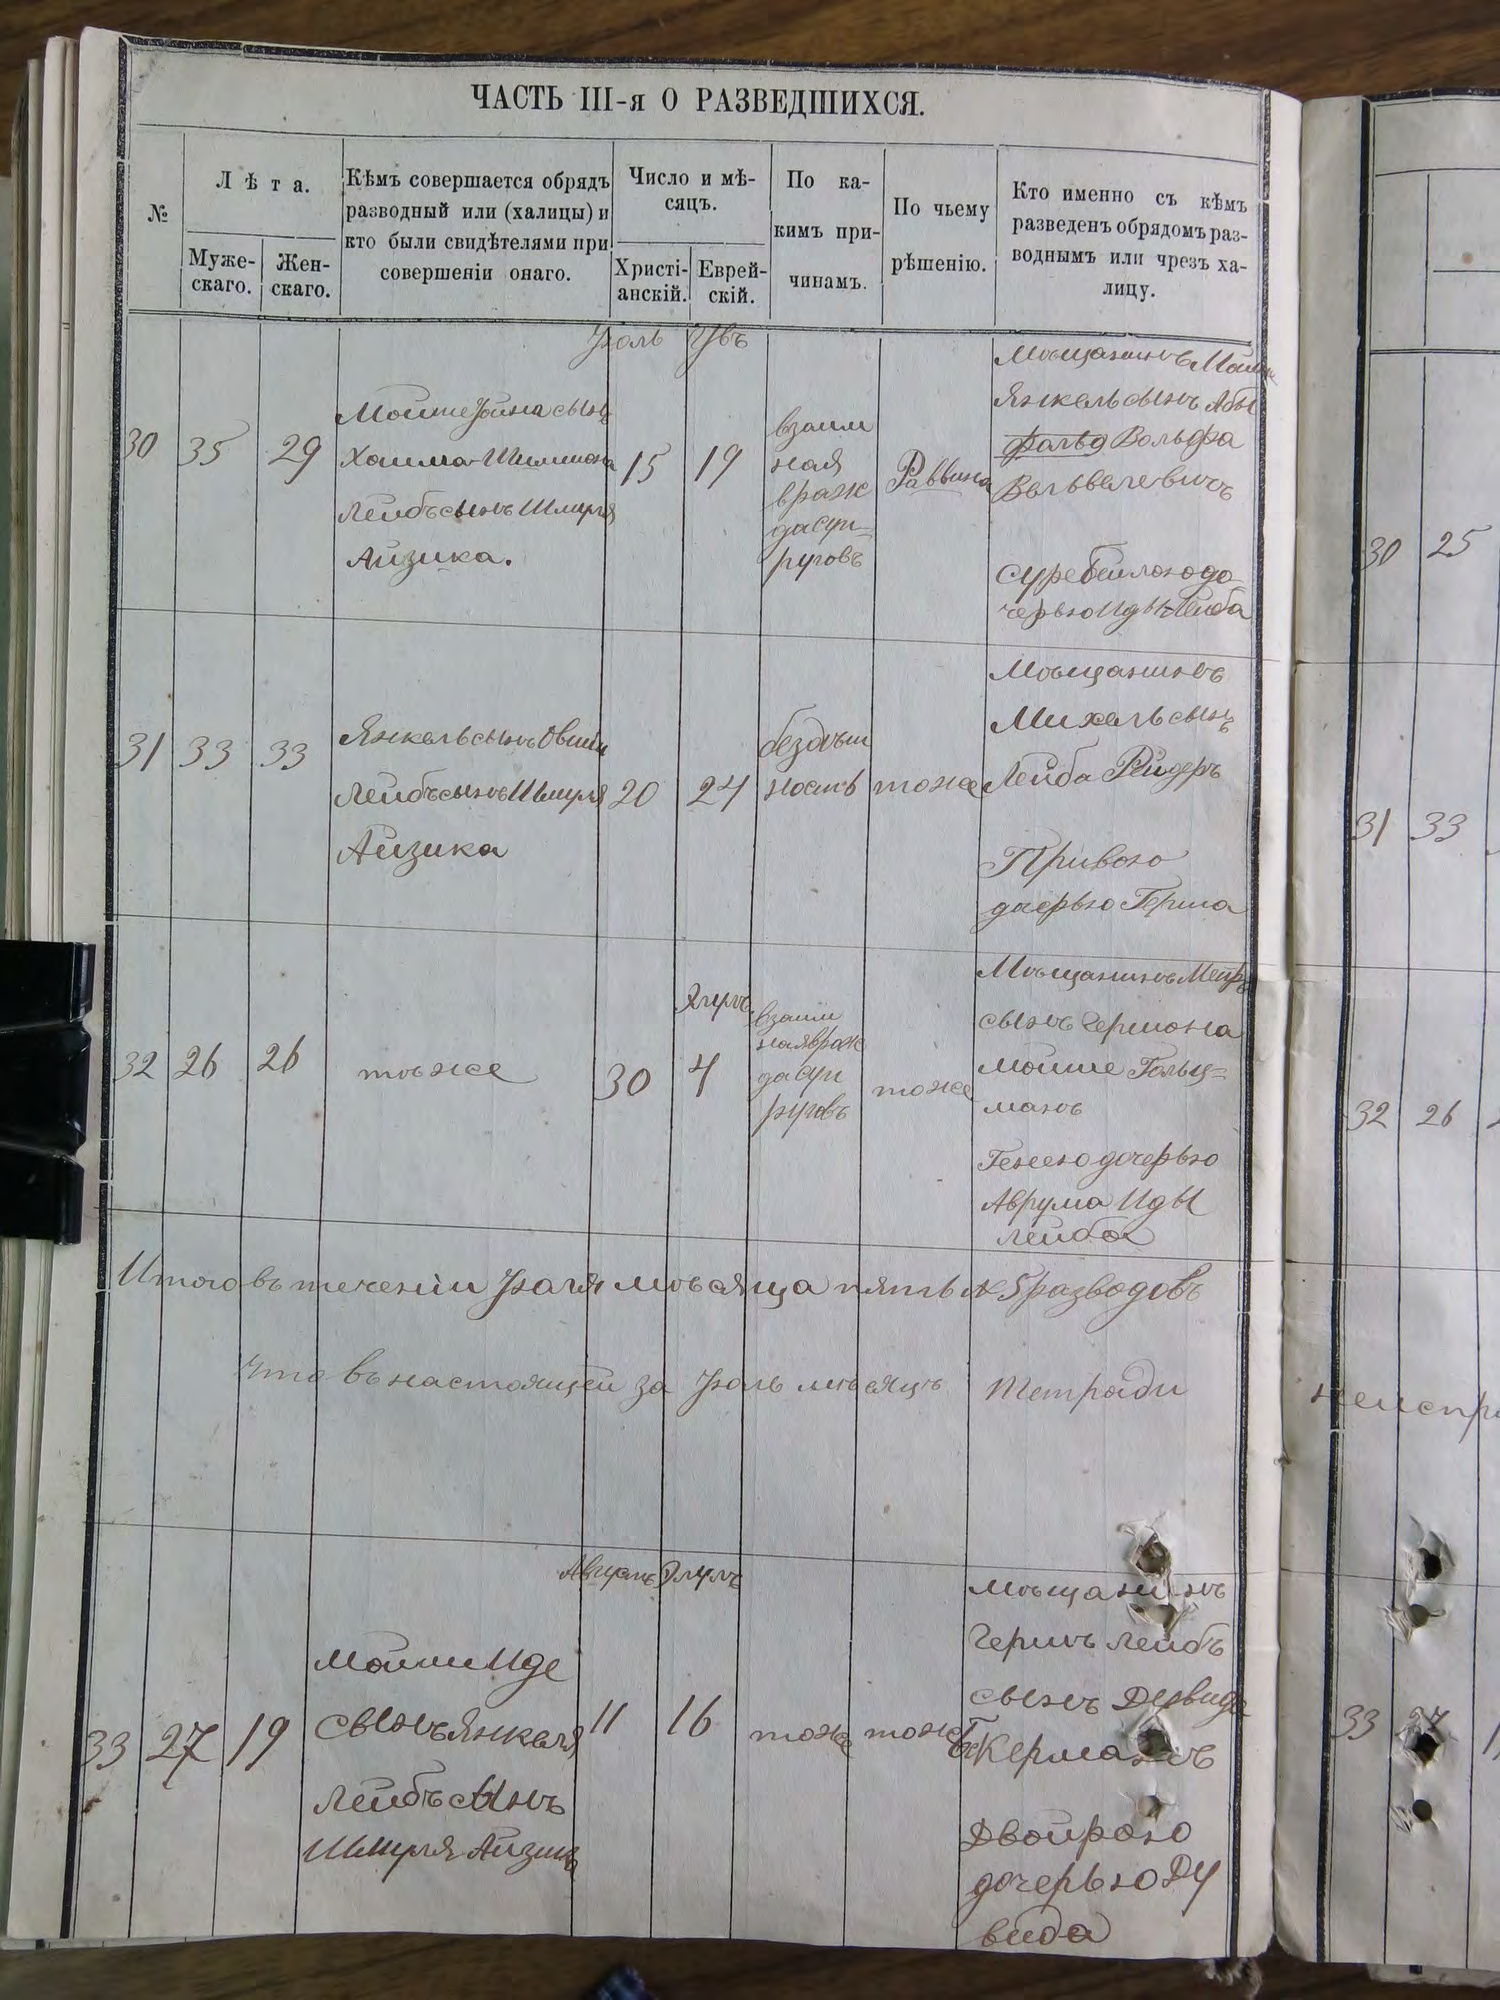 ЧАСТЬ III-я О РАЗВЕДШИХСЯ.
№
Лѣта.
Муже-
скаго.
Жен-
скаго.
Кѣмъ совершается обрядъ
разводный или (халицы) и
кто были свидѣтелями при
совершеніи онаго.
Число и мѣ-
сяцъ.
Христі-
анскій.
Еврей-
скій.
По ка-
кимъ при-
чинамъ.
По чьему
рѣшенію.
Кто именно съ кѣмъ
разведенъ обрядомъ раз-
воднымъ или чрезъ ха-
лицу.
Іюль
30
35
29
Хаима-Шимшона
Лейбъ сынъ Шмуля
Айзика.
15
19
взаим
ная
враж
да суп-
руговъ
Раввина
Мѣщанинъ
Янкель сынъ
Вольфа
Вольвелевичъ
Суре Бейлою до-
черью Иды Лейба
31
33
33
Янкель сынъ Овшии
Лейбъ сынъ Шмуля
Айзика
20
24
бездѣт
ность
тоже
Мѣщанинъ
Михель сынъ
Лейба Рейдеръ
Привою
дочерью Герша
32
26
26
тоже
30
4
взаим
ная враж
да суп
руговъ
тоже
Мѣщанинъ Меиръ
сынъ Гершона
Мойше Гольц-
манъ
Генею дочерью
Аврума Иды
Лейба
Итого въ теченіи Іюля мѣсяца пять № 5 разводовъ
Что въ настоящей за Іюль мѣсяцъ тетради
Августъ Элулъ
33
27
19
Мойше Иде
сынъ Янкеля
Лейбъ сынъ
Шмуля Айзика
11
16
тоже
тоже
Мѣщанинъ
Гершъ Лейбъ
сынъ Дувида
Керманъ
Двойрою
дочерью Ду
вида
30
25
31
33
32
26
33
27